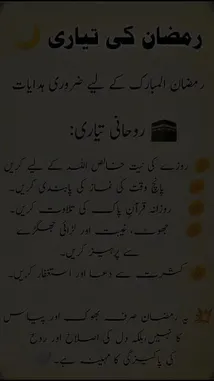 رمضان کی تیاری
رمضان المبارک کے لیے ضروری ہدایات
روحانی تیاری:
روزے کی نیت خالص اللہ کے لیے کریں
پانچ وقت کی نماز کی پابندی کریں۔
روزانہ قرآنِ پاک کی تلاوت کریں۔
جھوٹ، غیبت اور لڑائی جھگڑے
سے پرہیز کریں۔
کثرت سے دعا اور استغفار کریں۔
یہ رمضان صرف بھوک اور پیاس
کا نہیں بلکہ دل کی اصلاح اور روح
کی پاکیزگی کا مہینہ ہے۔